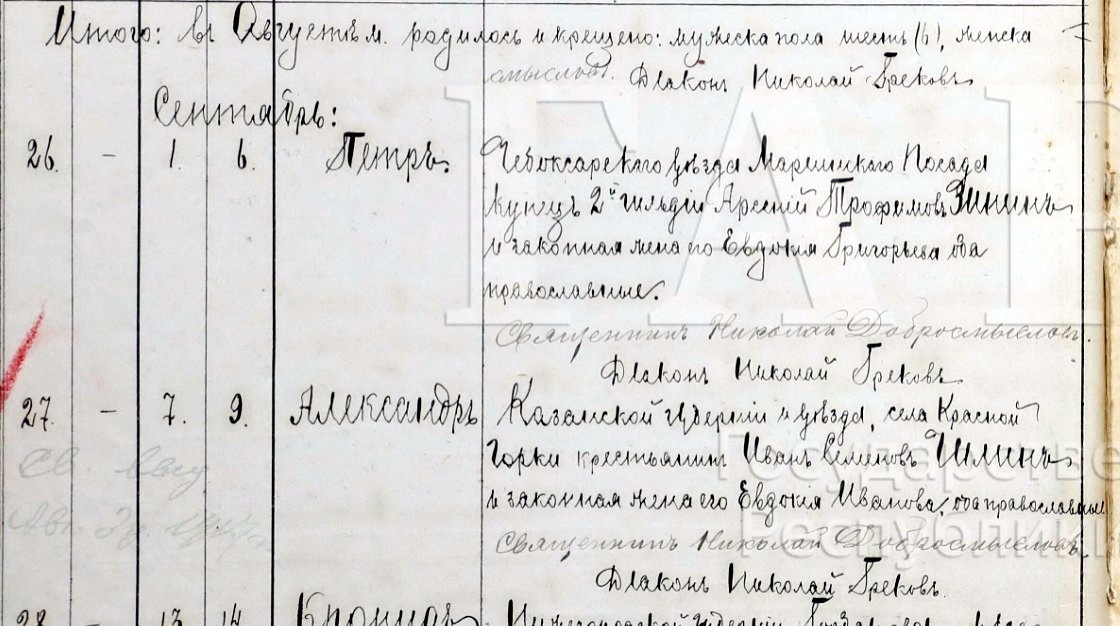 Итого: въ Августѣ м. родилось и крещено: мужеска пола шесть (6), женска
Діаконъ Николай Грековъ
Сентябрь:
26. – 1. 6. Петръ. Чебоксарскаго уѣзда Маріинскаго Посада
купецъ 2й гильдіи Арсеній Трофимовъ Зининъ
и законная жена его Евдокія Григорьева оба
православные.
Священникъ Николай Добросмысловъ.
Діаконъ Николай Грековъ
27. – 7. 9. Александръ Казанской губерніи и уѣзда, села Красной
Горки крестьянинъ Иванъ Семеновъ Шилинъ
и законная жена его Евдокія Иванова, оба православные
Священникъ Николай Добросмысловъ.
Діаконъ Николай Грековъ.
28. – 13 14. Нижегородской губерніи
Государстве
Республики